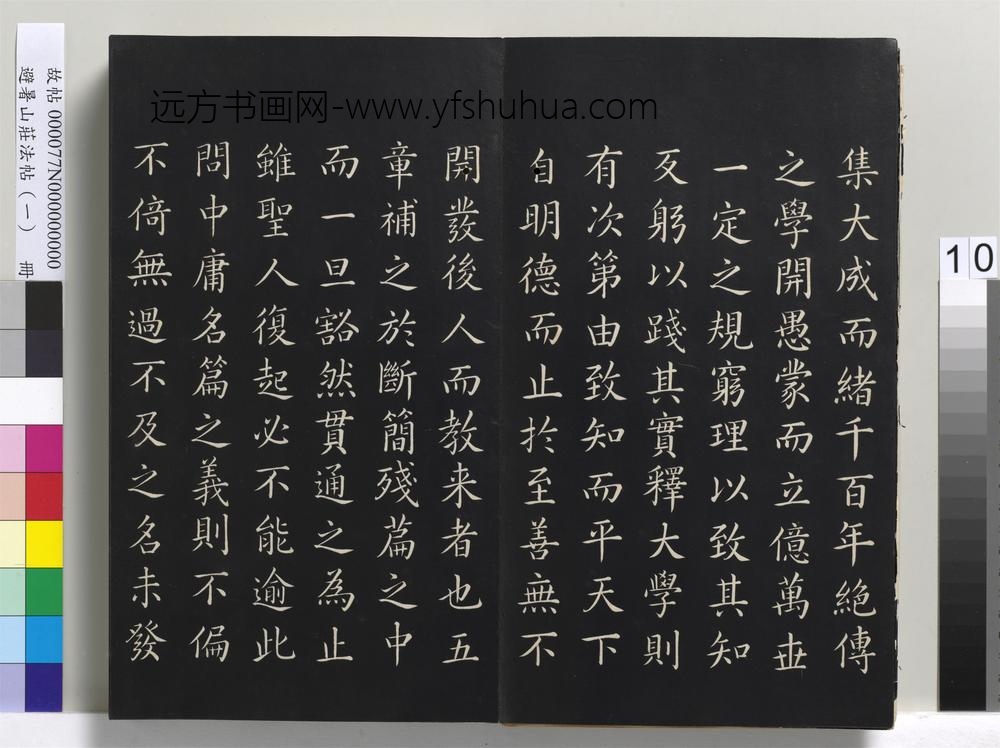 远方书画网-www.yfshuhua.com
集大成而緒千百年絕傳
之學開愚蒙而立億萬世
一定之規窮理以致其知
反躬以踐其實釋大學則
有次第由致知而平天下
自明德而止於至善無不
開發後人而教来者也五
章補之於斷簡殘篇之中
而一旦豁然貫通之為止
雖聖人復起必不能逾此
問中庸名篇之義則不偏
不倚無過不及之名未發
故帖000077N000000000
避暑山莊法帖(一) 冊
10